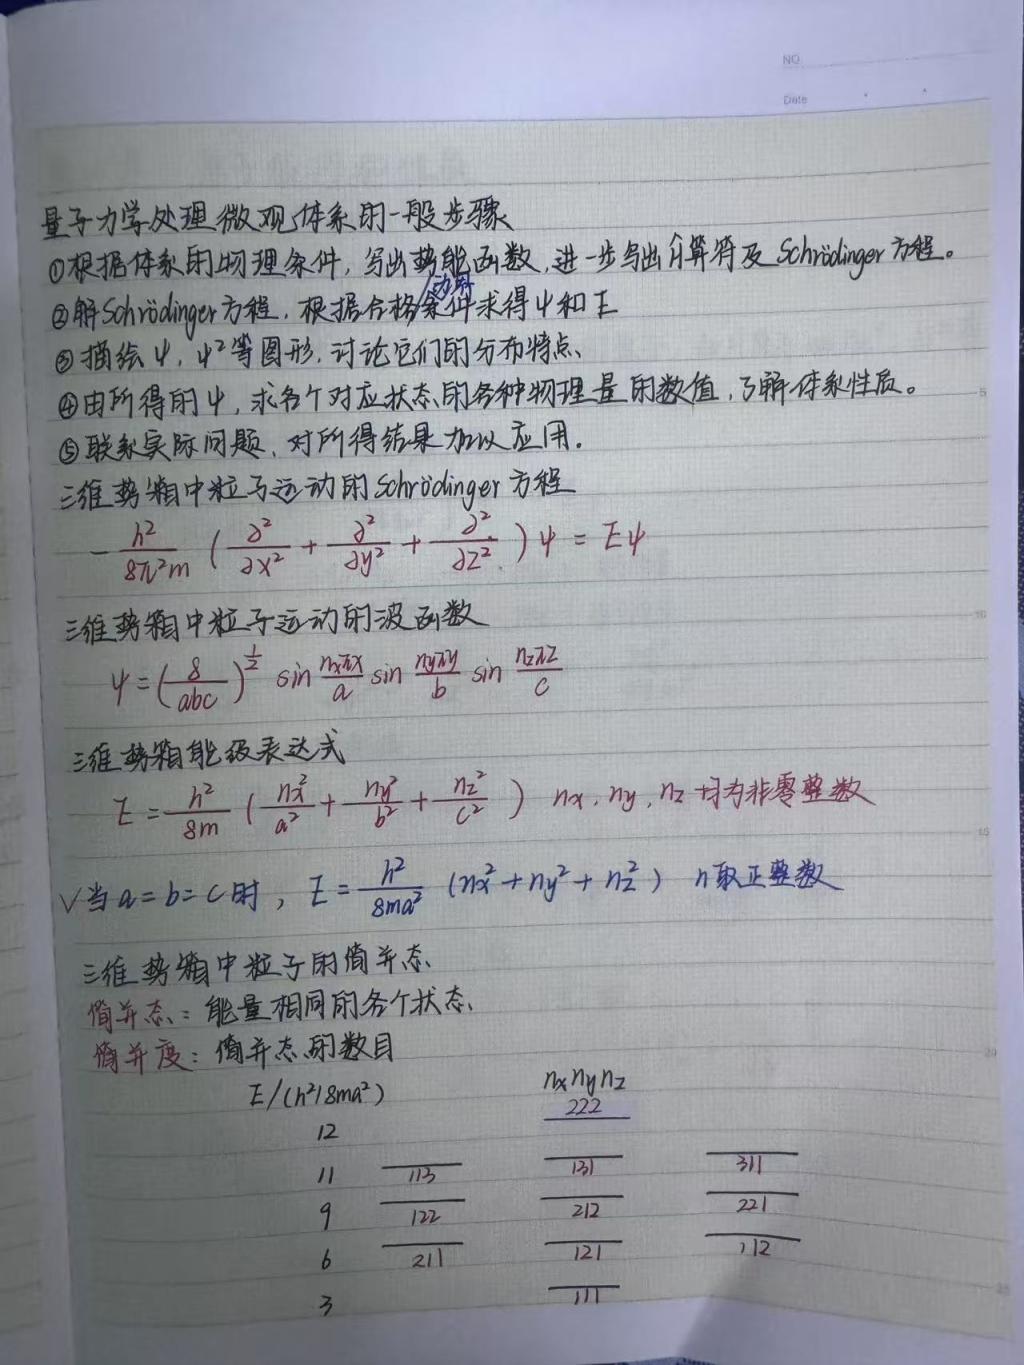 NO
Date
量子力学处理微观体系的一般步骤
①根据体系的物理条件,写出势能函数,进一步写出Ĥ算符及Schrödinger方程。
②解Schrödinger方程,根据合格/边界条件求得ψ和E
③描绘ψ,ψ²等图形,讨论它们的分布特点、
④由所得的ψ,求各个对应状态的各种物理量的数值,了解体系性质。
⑤联系实际问题,对所得结果加以应用.
三维势箱中粒子运动的Schrödinger方程
-h²/8π²m (∂²/∂x² + ∂²/∂y² + ∂²/∂z²)ψ = Eψ
三维势箱中粒子运动的波函数
ψ=(8/abc)^½ sin nxπx/a sin nyπy/b sin nzπz/c
三维势箱能级表达式
E = h²/8m (nx²/a² + ny²/b² + nz²/c²) nx,ny,nz均为非零整数
√当a=b=c时,E = h²/8ma² (nx²+ny²+nz²) n取正整数
三维势箱中粒子的简并态
简并态:能量相同的各个状态
简并度:简并态的数目
E/(h²/8ma²) nxnynz
222
12
11 113 131 311
9 122 212 221
6 211 121 112
3 111
5
10
15
20
25